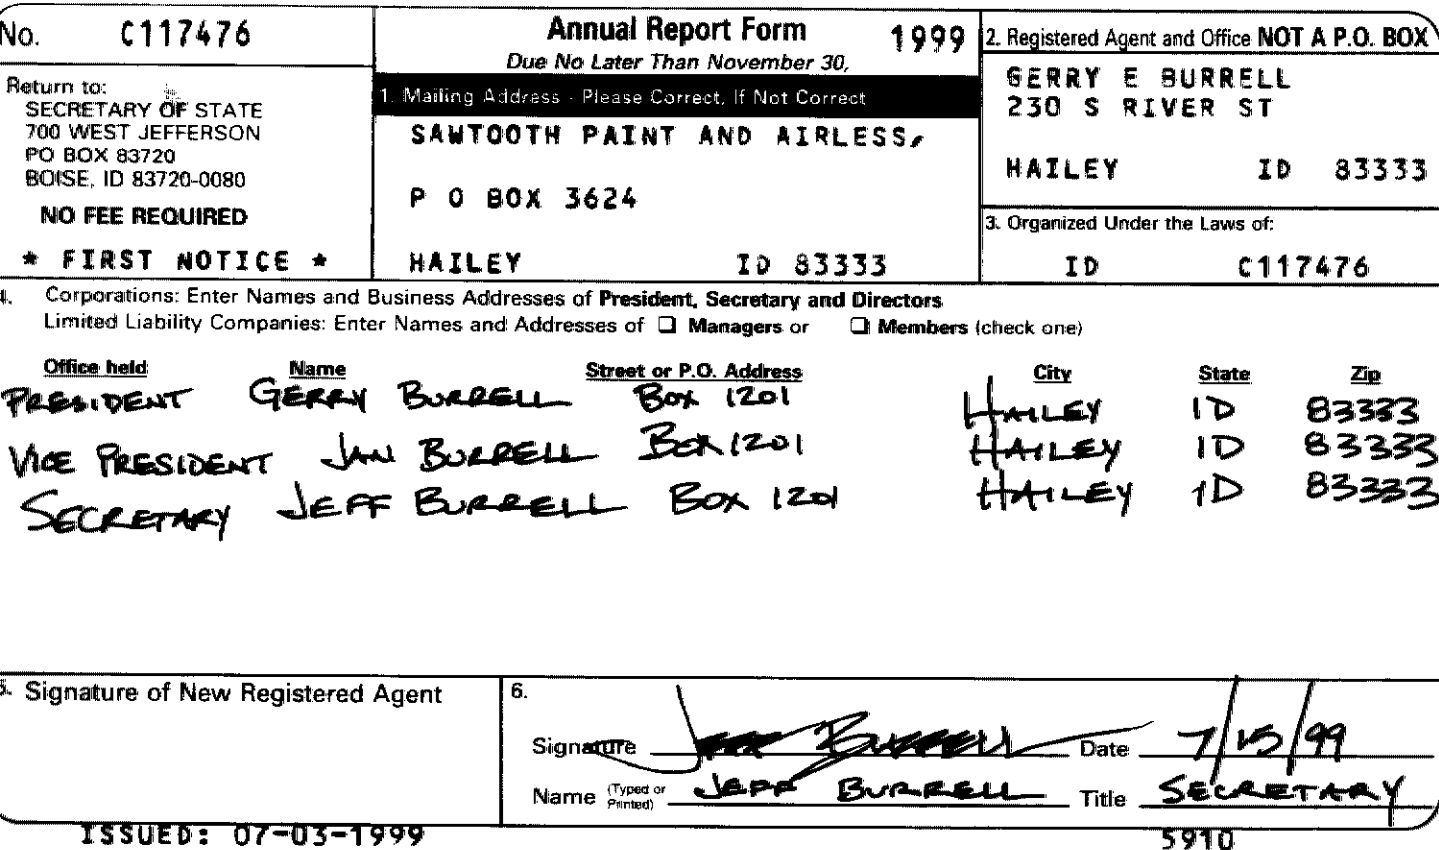 No. C117476
Return to:
SECRETARY OF STATE
700 WEST JEFFERSON
PO BOX 83720
BOISE, ID 83720-0080
NO FEE REQUIRED
* FIRST NOTICE *
Annual Report Form 1999
Due No Later Than November 30,
1. Mailing Address - Please Correct, If Not Correct
SAWTOOTH PAINT AND AIRLESS,
P O BOX 3624
HAILEY ID 83333
2. Registered Agent and Office NOT A P.O. BOX
GERRY E BURRELL
230 S RIVER ST
HAILEY ID 83333
3. Organized Under the Laws of:
ID C117476
4. Corporations: Enter Names and Business Addresses of President, Secretary and Directors
Limited Liability Companies: Enter Names and Addresses of ☐ Managers or ☐ Members (check one)
Office held Name Street or P.O. Address City State Zip
PRESIDENT GERRY BURRELL BOX 1201 HAILEY ID 83333
VICE PRESIDENT JAN BURRELL BOX 1201 HAILEY ID 83333
SECRETARY JEFF BURRELL BOX 1201 HAILEY ID 83333
5. Signature of New Registered Agent
6.
Signature Jeff Burrell Date 7/15/99
Name (Typed or Printed) JEFF BURRELL Title SECRETARY
ISSUED: 07-03-1999 5910